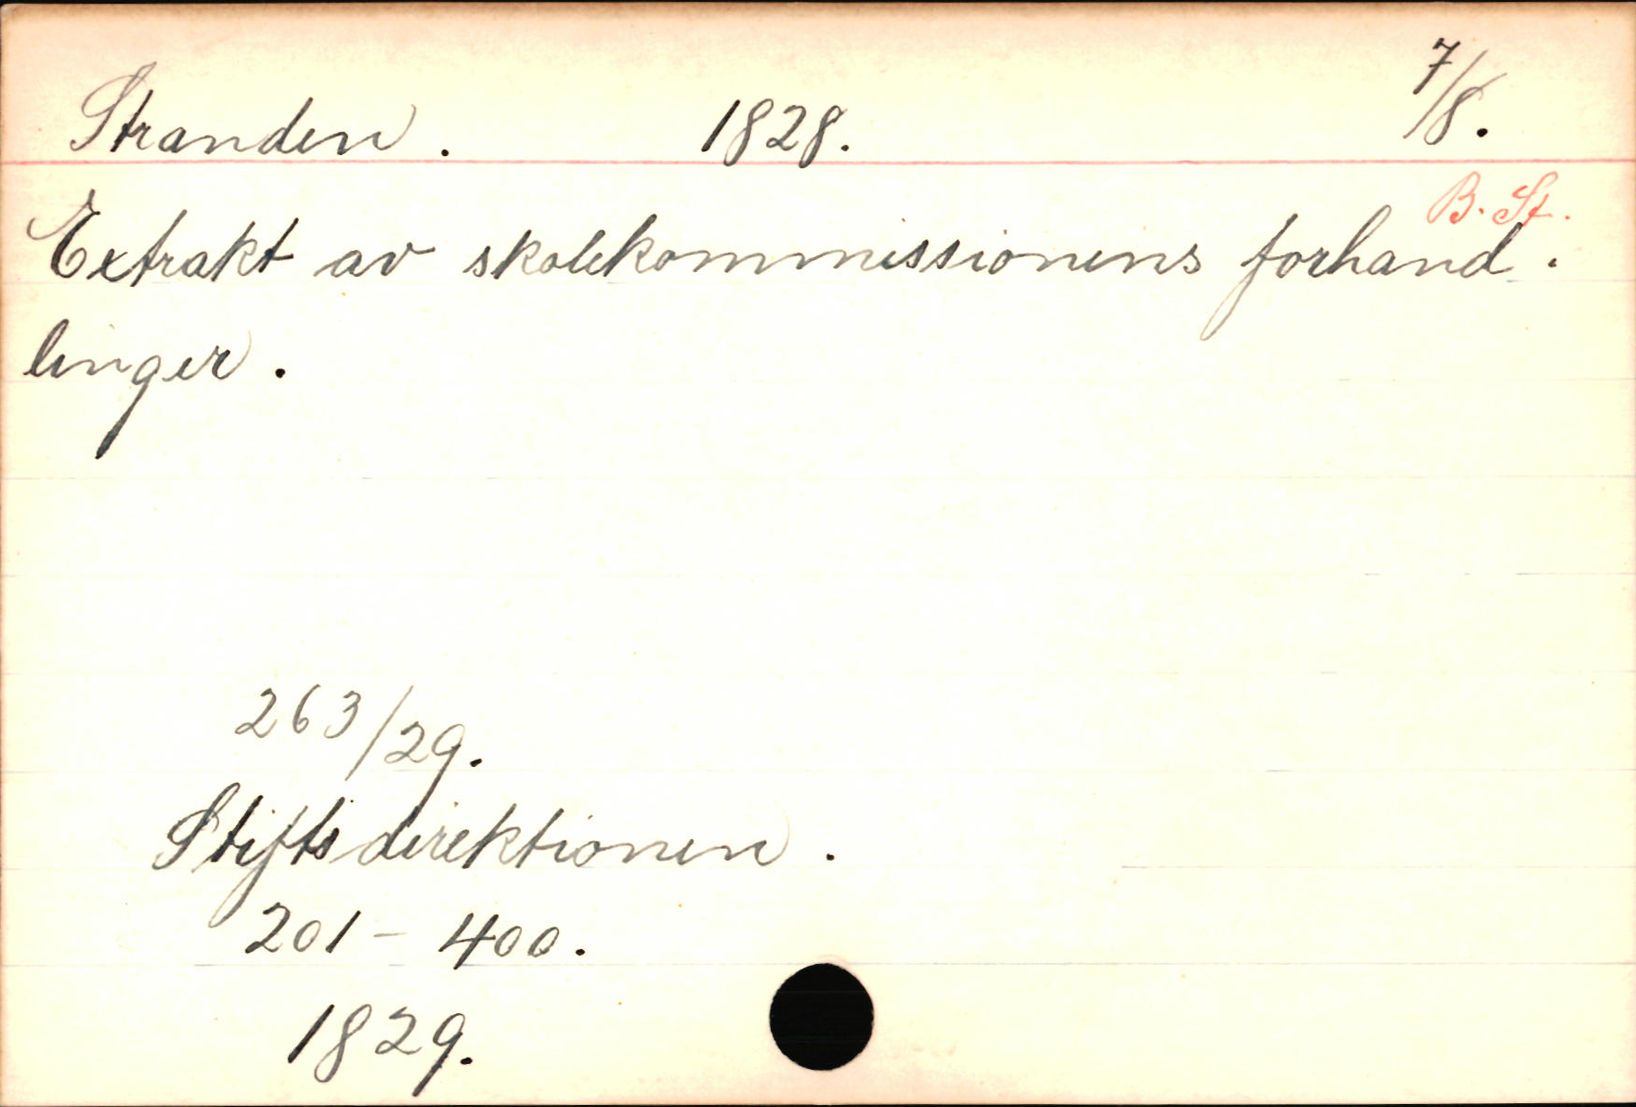 Stranden. 1828. 7/8.
B. St.
Extrakt av skolekommissionens forhand-
linger.
263/29.
Stiftsdirektionen.
201 - 400.
1829.